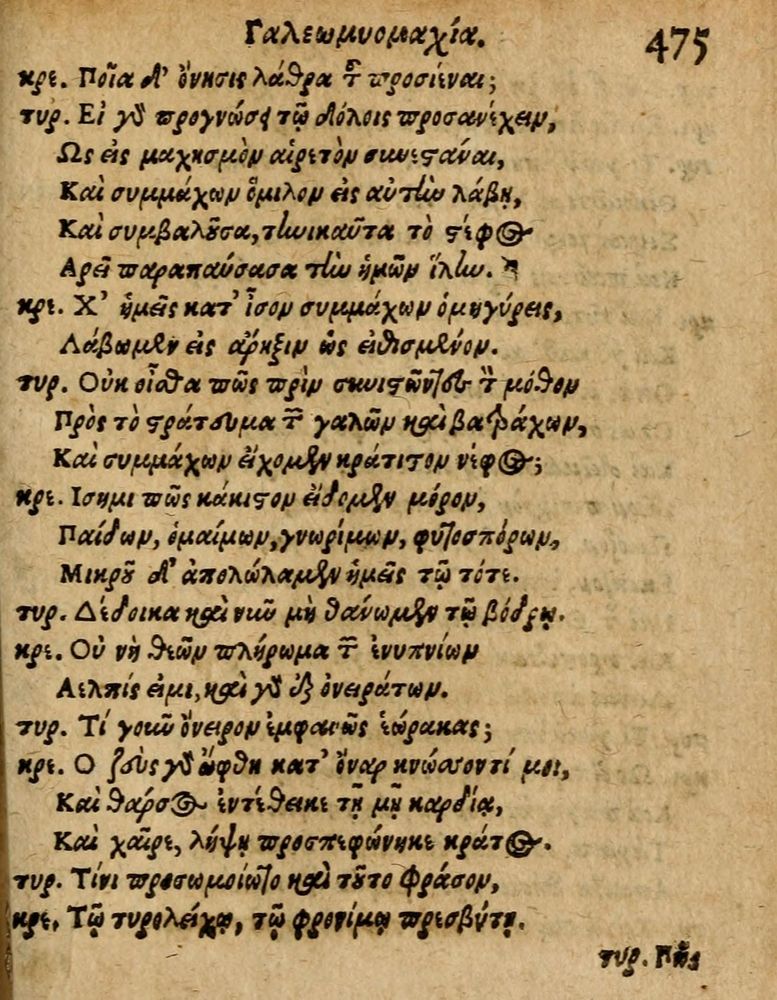 Γαλεωμυομαχία. 475
κρε. Ποῖα δ' ὄνησις λάθρα τ προσιέναι;
τυρ. Εἰ γδ προγνώσῃ τῷ δόλοις προσανέχειν,
Ως εἰς μαχησμὸν αἱρετὸν συνιστάναι,
Καὶ συμμάχων ὅμιλον εἰς αὐτὴν λάβῃ,
Καὶ συμβαλοῦσα, τηνικαῦτα τὸ στίφος
Αρεῖ παραπαύσασα τὴν ἡμῶν ἴλην.
κρε. Χ' ἡμεῖς κατ' ἶσον συμμάχων ὁμηγύρεις,
Λάβωμεν εἰς ἄρηξιν ὡς εἰθισμένον.
τυρ. Οὐκ οἶσθα πῶς πρὶν συνιστῶντες τ μόθον
Πρὸς τὸ στράτευμα τ γαλῶν καὶ βατράχων,
Καὶ συμμάχων εἴχομεν κράτιστον νέφος;
κρε. Ισημι πῶς κάκιστον εἴδομεν μόρον,
Παίδων, ὁμαίμων, γνωρίμων, φυτοσπόρων,
Μικροῦ δ' ἀπολώλαμεν ἡμεῖς τῷ τότε.
τυρ. Δέδοικα καὶ νῦν μὴ θάνωμεν τῷ βόθρῳ.
κρε. Οὐ νὴ θεῶν πλήρωμα τ ἐνυπνίων
Αελπίς εἰμι, καὶ γδ ἐξ ὀνειράτων.
τυρ. Τί γοῦν ὄνειρον ἐμφανῶς ἑώρακας;
κρε. Ο ζεὺς γδ ὤφθη κατ' ὄναρ κνώσσοντί μοι,
Καὶ θάρσος ἐντέθεικε τῇ μῇ καρδίᾳ,
Καὶ χαῖρε, λήψῃ προσπεφώνηκε κράτος.
τυρ. Τίνι προσωμοίωτο καὶ τοῦτο φράσον,
κρε. Τῷ τυρολείχῳ, τῷ φρονίμῳ πρεσβύτῃ.
τυρ. Πῆς